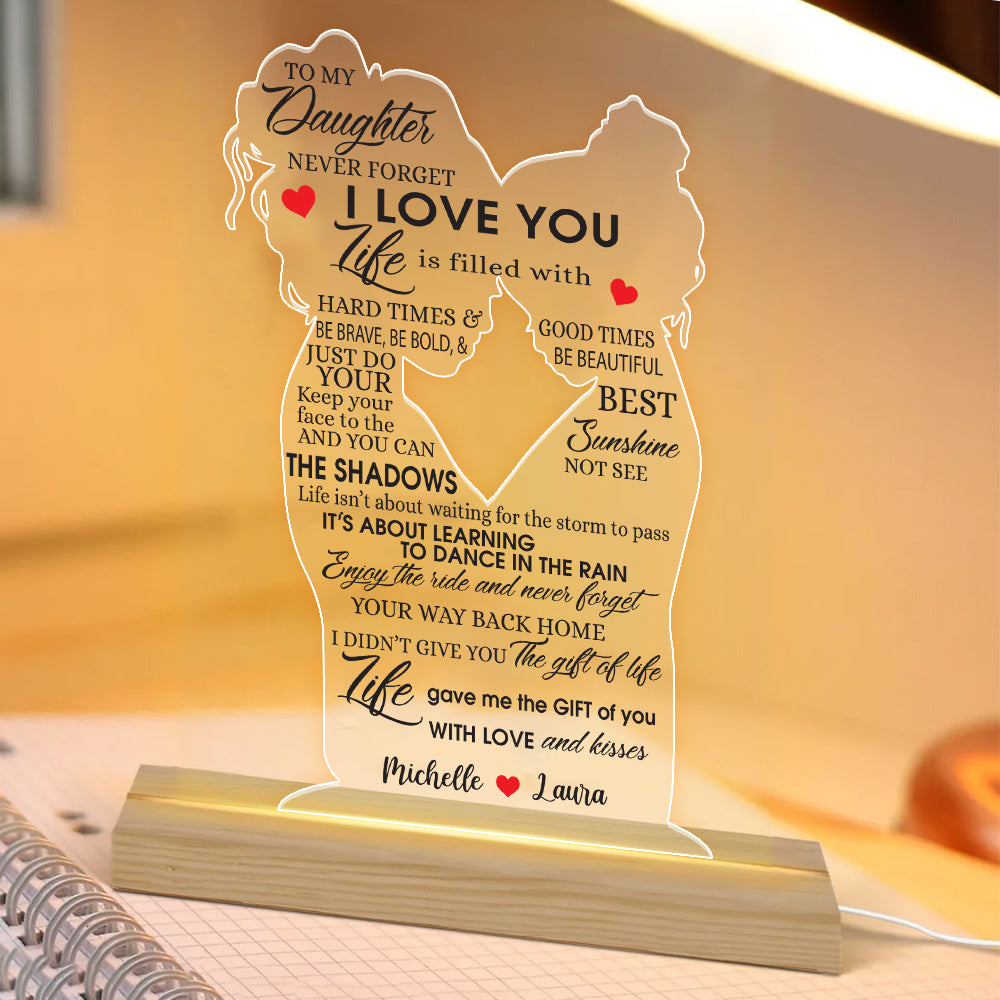 TO MY
Daughter
NEVER FORGET
I LOVE YOU
Life is filled with
HARD TIMES & GOOD TIMES
BE BRAVE, BE BOLD, & BE BEAUTIFUL
JUST DO
YOUR BEST
Keep your
face to the Sunshine
AND YOU CAN NOT SEE
THE SHADOWS
Life isn't about waiting for the storm to pass
IT'S ABOUT LEARNING
TO DANCE IN THE RAIN
Enjoy the ride and never forget
YOUR WAY BACK HOME
I DIDN'T GIVE YOU The gift of life
Life gave me the GIFT of you
WITH LOVE and kisses
Michelle Laura